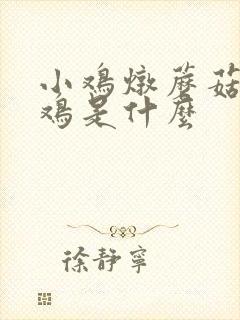 小鸡燉蘑菇
鸡是什麼
徐静寧